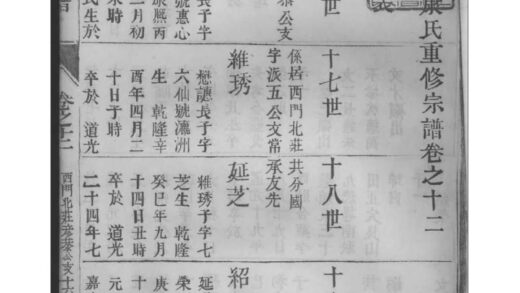 氏重修宗譜卷之十二
世
公支
長子字
號惠心
熙丙
二月初
時
氏生於
十七世
係居西門北莊共分國
字派五公支常承友先
雅琇
懋謙長子字
六仙號瀛洲
生 乾隆辛
酉年四月二
十日子時
卒於 道光
十八世
延芝
雅琇子字七
芝生 乾隆
癸巳年九月
十四日丑時
卒於 道光
二十四年七
十
紹
延
榮
庚
十
元
嘉
譜
卷之十二
西門北莊
公支十